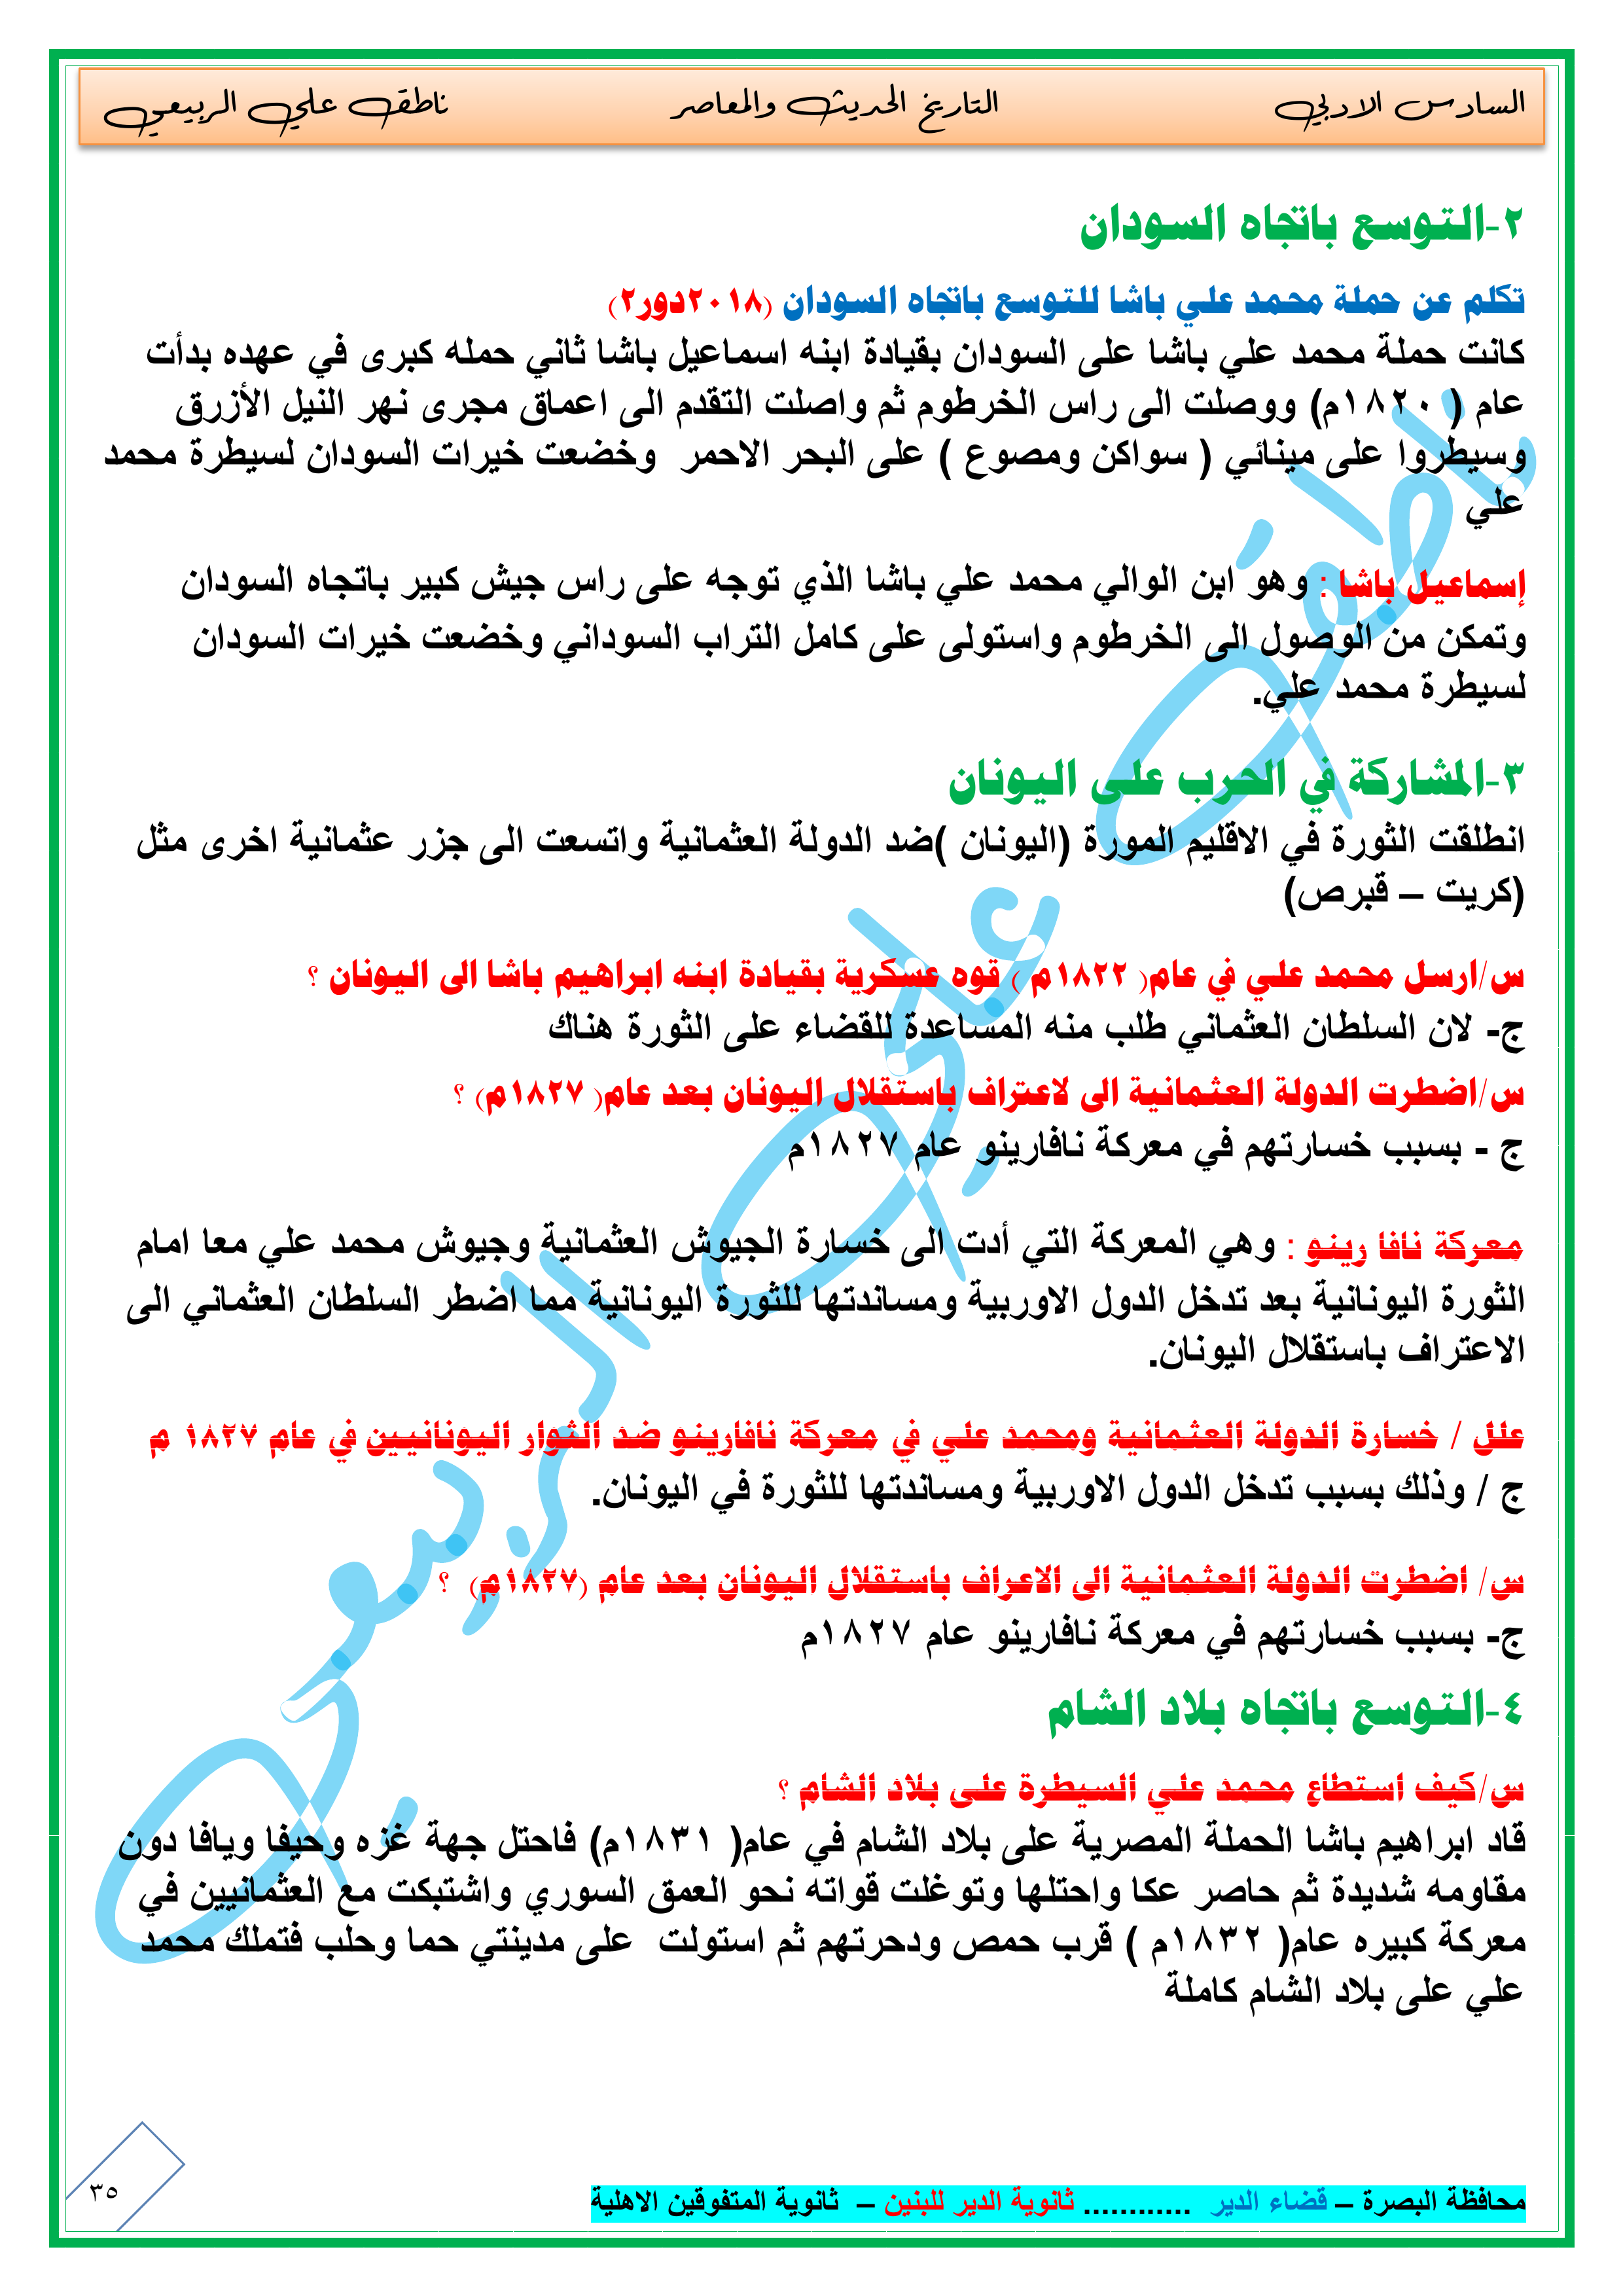 السادس الادبي التاريخ الحديث والمعاصر ناطق علي الربيعي
٢-التوسع باتجاه السودان
تكلم عن حملة محمد علي باشا للتوسع باتجاه السودان (٢٠١٨دور٢)
كانت حملة محمد علي باشا على السودان بقيادة ابنه اسماعيل باشا ثاني حمله كبرى في عهده بدأت
عام ( ١٨٢٠م) ووصلت الى راس الخرطوم ثم واصلت التقدم الى اعماق مجرى نهر النيل الأزرق
وسيطروا على مينائي ( سواكن ومصوع ) على البحر الاحمر وخضعت خيرات السودان لسيطرة محمد
علي
إسماعيل باشا : وهو ابن الوالي محمد علي باشا الذي توجه على راس جيش كبير باتجاه السودان
وتمكن من الوصول الى الخرطوم واستولى على كامل التراب السوداني وخضعت خيرات السودان
لسيطرة محمد علي.
٣-المشاركة في الحرب على اليونان
انطلقت الثورة في الاقليم المورة (اليونان )ضد الدولة العثمانية واتسعت الى جزر عثمانية اخرى مثل
(كريت – قبرص)
س/ارسل محمد علي في عام( ١٨٢٢م ) قوه عسكرية بقيادة ابنه ابراهيم باشا الى اليونان ؟
ج- لان السلطان العثماني طلب منه المساعدة للقضاء على الثورة هناك
س/اضطرت الدولة العثمانية الى لاعتراف باستقلال اليونان بعد عام( ١٨٢٧م) ؟
ج - بسبب خسارتهم في معركة نافارينو عام ١٨٢٧م
معركة نافا رينو : وهي المعركة التي أدت الى خسارة الجيوش العثمانية وجيوش محمد علي معا امام
الثورة اليونانية بعد تدخل الدول الاوربية ومساندتها للثورة اليونانية مما اضطر السلطان العثماني الى
الاعتراف باستقلال اليونان.
علل / خسارة الدولة العثمانية ومحمد علي في معركة نافارينو ضد الثوار اليونانيين في عام ١٨٢٧ م
ج / وذلك بسبب تدخل الدول الاوربية ومساندتها للثورة في اليونان.
س/ اضطرت الدولة العثمانية الى الاعراف باستقلال اليونان بعد عام (١٨٢٧م) ؟
ج- بسبب خسارتهم في معركة نافارينو عام ١٨٢٧م
٤-التوسع باتجاه بلاد الشام
س/كيف استطاع محمد علي السيطرة على بلاد الشام ؟
قاد ابراهيم باشا الحملة المصرية على بلاد الشام في عام( ١٨٣١م) فاحتل جهة غزه وحيفا ويافا دون
مقاومه شديدة ثم حاصر عكا واحتلها وتوغلت قواته نحو العمق السوري واشتبكت مع العثمانيين في
معركة كبيره عام( ١٨٣٢م ) قرب حمص ودحرتهم ثم استولت على مدينتي حما وحلب فتملك محمد
علي على بلاد الشام كاملة
محافظة البصرة – قضاء الدير ............ ثانوية الدير للبنين – ثانوية المتفوقين الاهلية
٣٥
ناطق علي الربيعي